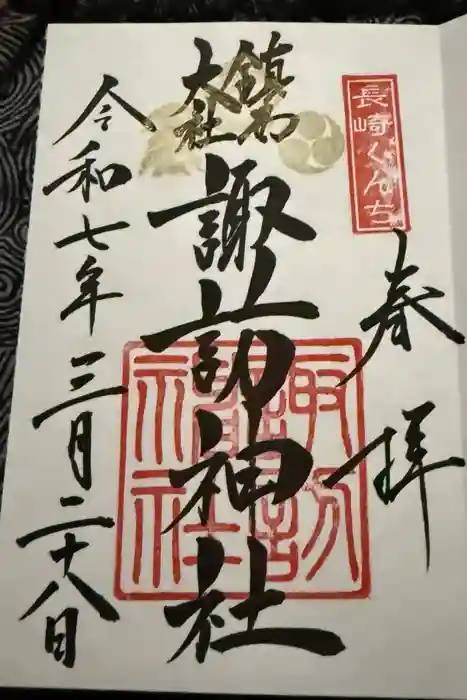 長崎くんち
奉拝
鎮西
大社
諏訪神社
諏訪
神社
令和七年三月二十八日